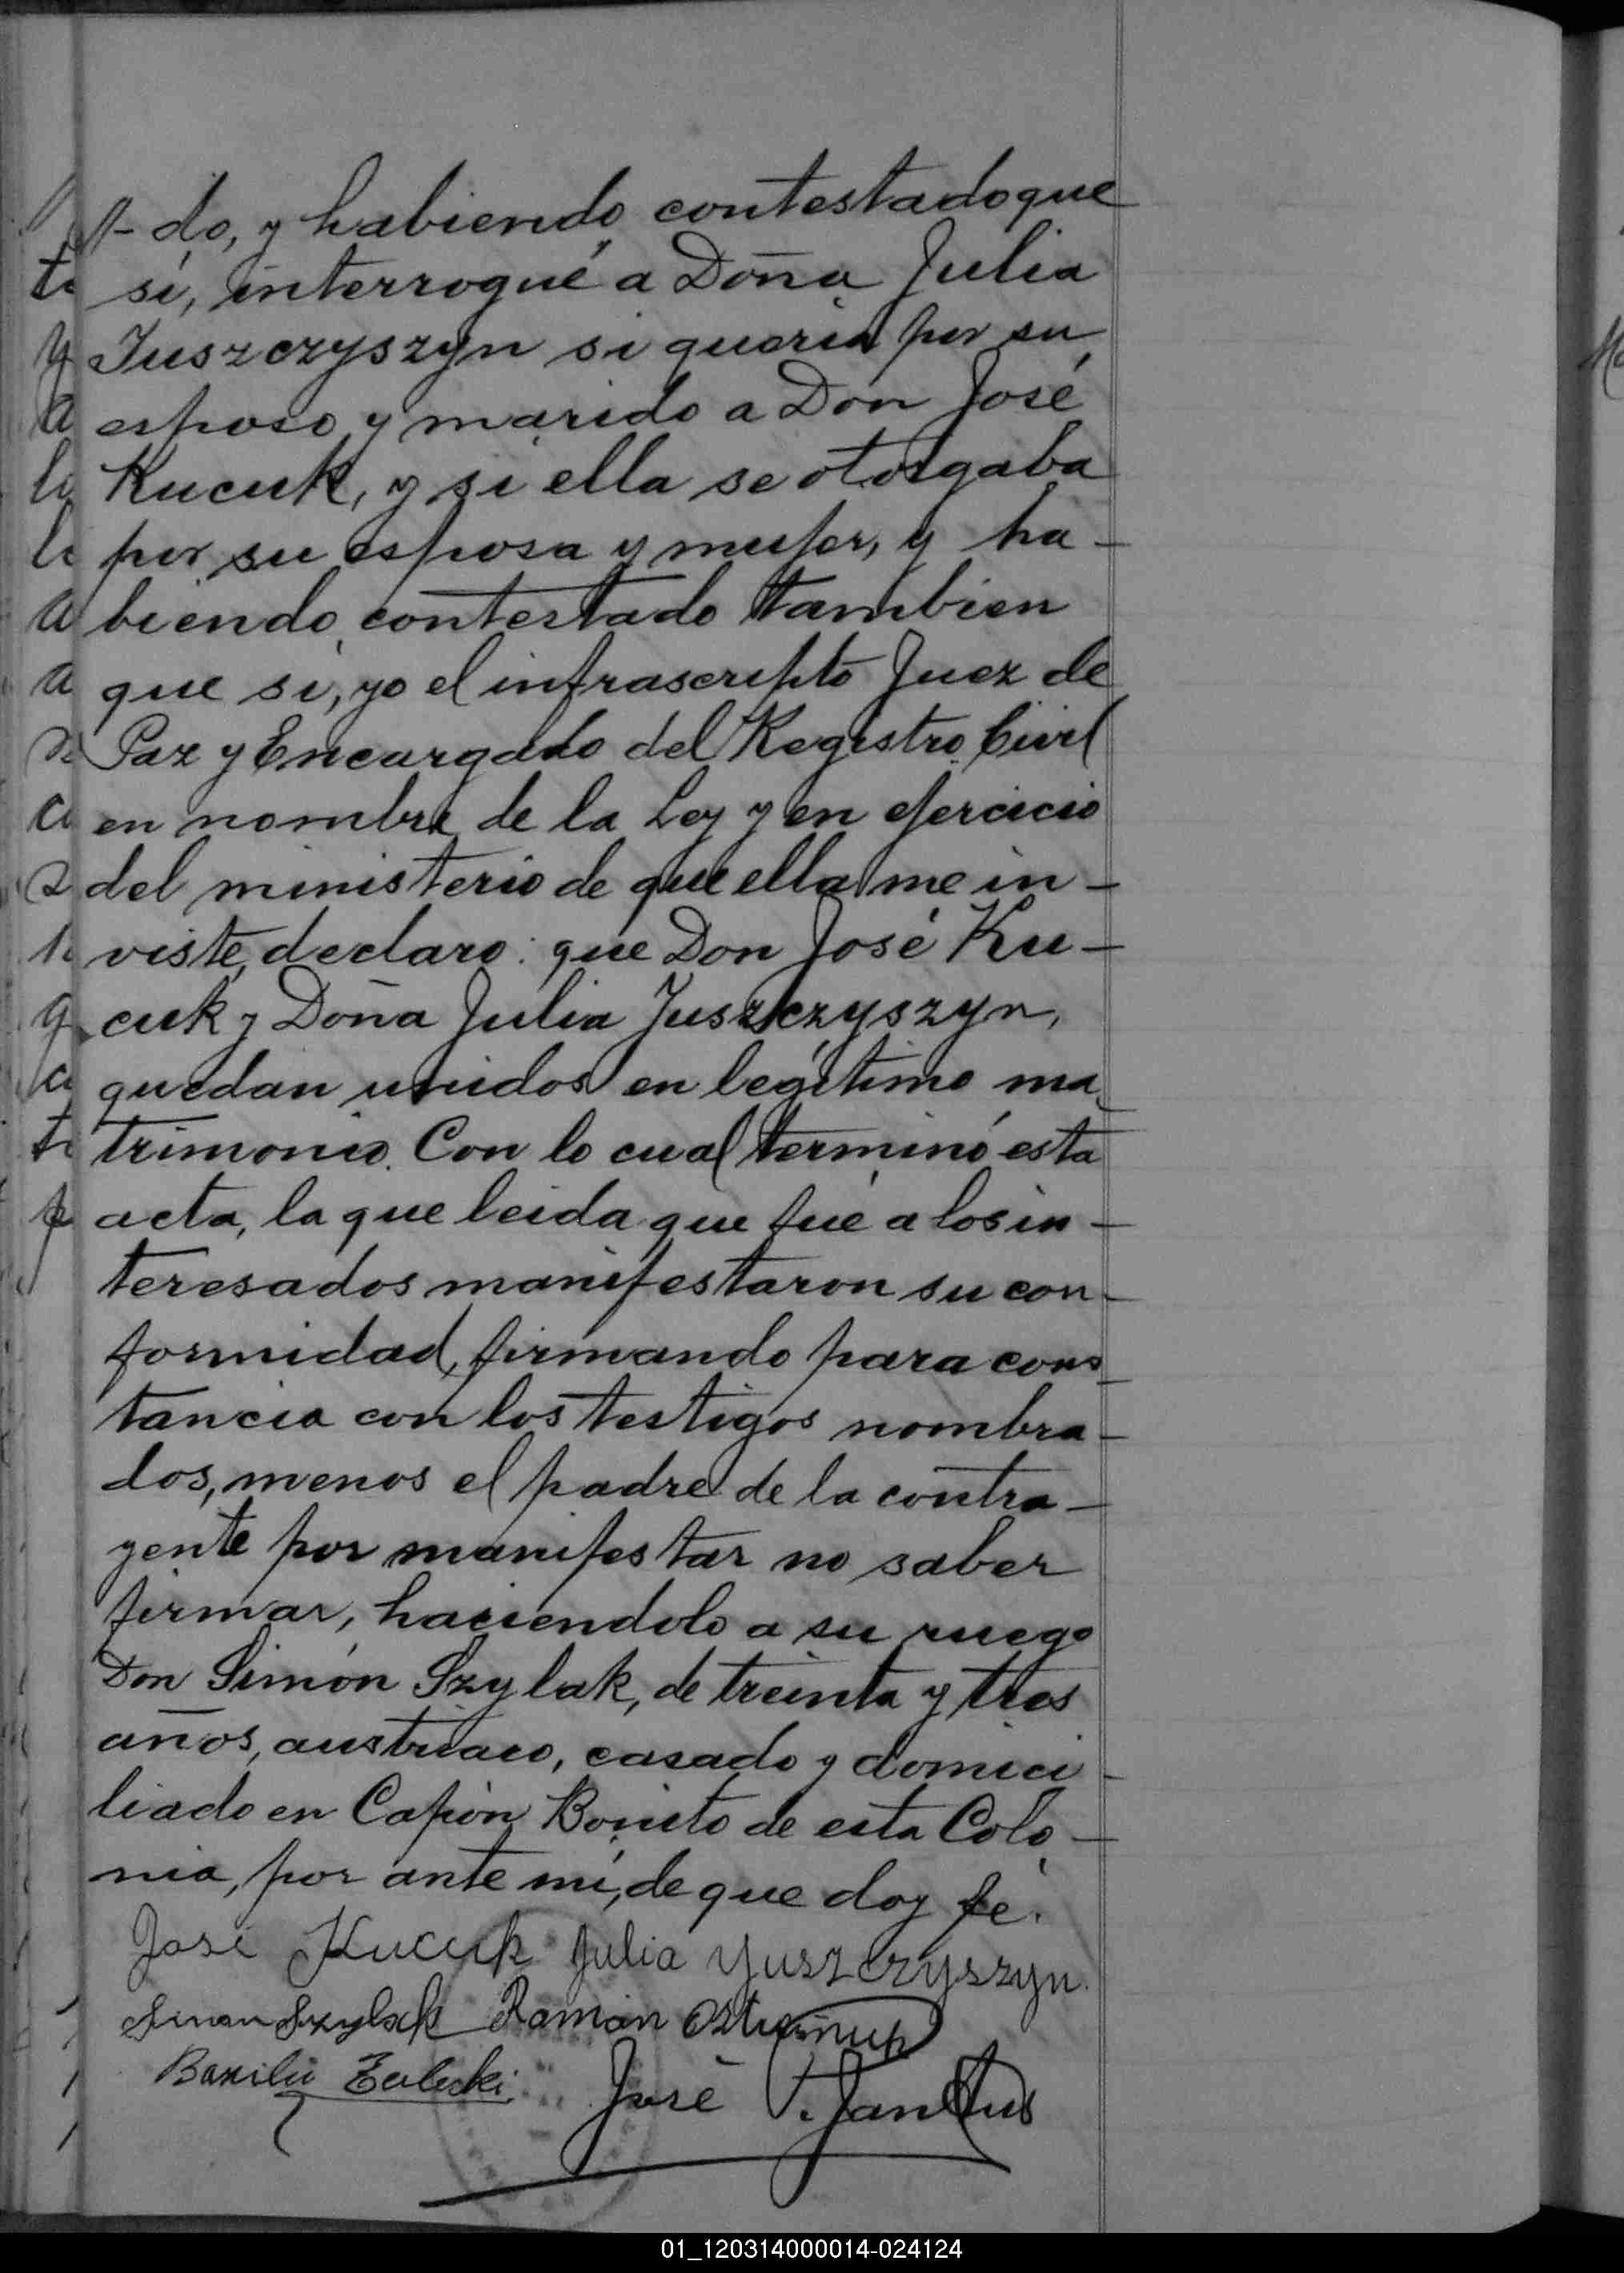 do, y habiendo contestado que
sí, interrogué a Doña Julia
Juszczyszyn si queria por su
esposo y marido a Don José
Kucuk, y si ella se otorgaba
por su esposa y mujer, y ha-
biendo contestado tambien
que sí, yo el infrascripto Juez de
Paz y Encargado del Registro Civil
en nombre de la Ley y en ejercicio
del ministerio de que ella me in-
viste, declaro: que Don José Ku-
cuk y Doña Julia Juszczyszyn,
quedan unidos en legítimo ma-
trimonio. Con lo cual terminó esta
acta, la que leida que fué a los in-
teresados manifestaron su con-
formidad, firmando para cons-
tancia con los testigos nombra-
dos, menos el padre de la contra-
yente por manifestar no saber
firmar, haciendolo a su ruego
Don Simón Szylak, de treinta y tres
años, austriaco, casado y domici-
liado en Capón Bonito de esta Colo-
nia, por ante mí, de que doy fé.
José Kucuk Julia Yuszczyszyn.
Simon Szylak Ramón
Bazilii
José
01_120314000014-024124